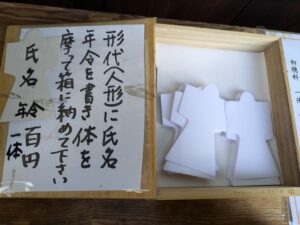 形代(人形)に氏名
年令を書き体を
摩って箱に納めて下さい
氏名 年令
一体 百円
初穂料